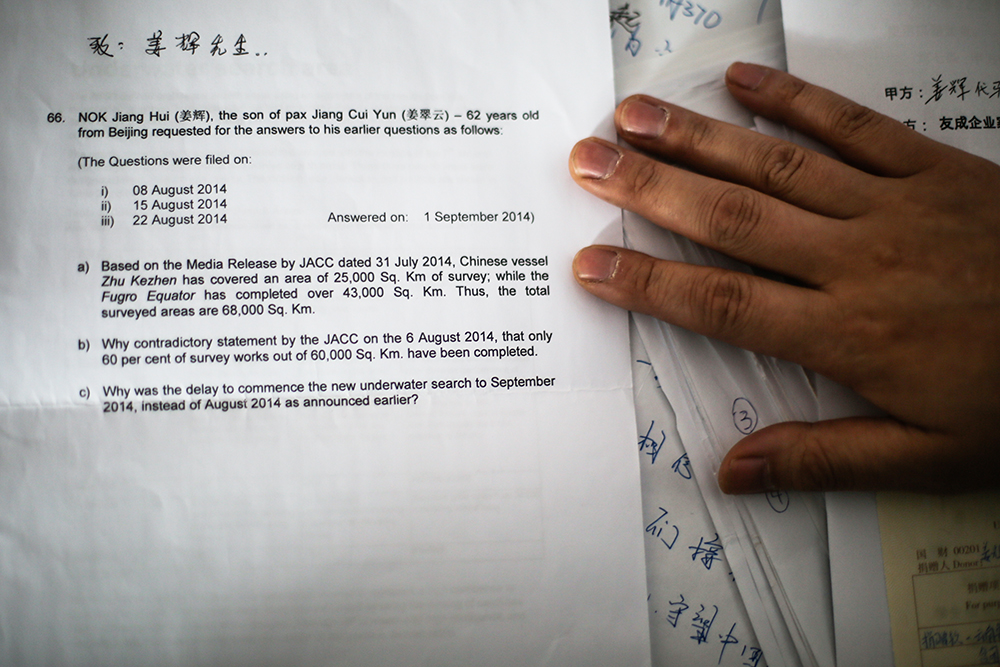 致：姜辉先生..
66. NOK Jiang Hui (姜辉), the son of pax Jiang Cui Yun (姜翠云) – 62 years old
from Beijing requested for the answers to his earlier questions as follows:
(The Questions were filed on:
i) 08 August 2014
ii) 15 August 2014
iii) 22 August 2014 Answered on: 1 September 2014)
a) Based on the Media Release by JACC dated 31 July 2014, Chinese vessel
Zhu Kezhen has covered an area of 25,000 Sq. Km of survey; while the
Fugro Equator has completed over 43,000 Sq. Km. Thus, the total
surveyed areas are 68,000 Sq. Km.
b) Why contradictory statement by the JACC on the 6 August 2014, that only
60 per cent of survey works out of 60,000 Sq. Km. have been completed.
c) Why was the delay to commence the new underwater search to September
2014, instead of August 2014 as announced earlier?
370
③
④
相信
们
中国
甲方：姜辉代
方：友成企业
国财 00201
捐赠人 Donor
捐赠
For pur